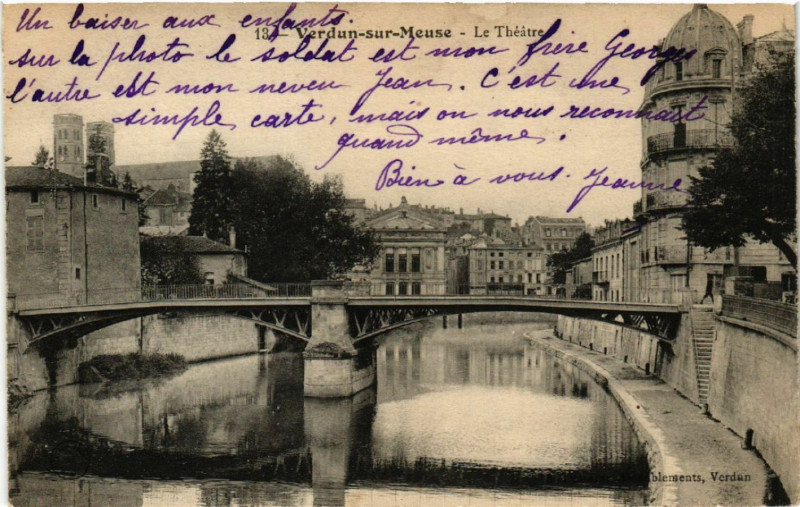 Un baiser aux enfants.
13 - Verdun-sur-Meuse - Le Théâtre
sur la photo le soldat est mon frère Georges
l'autre est mon neveu Jean. C'est une
simple carte, mais on nous reconnait
quand même.
Bien à vous. Jeanne
blements, Verdun